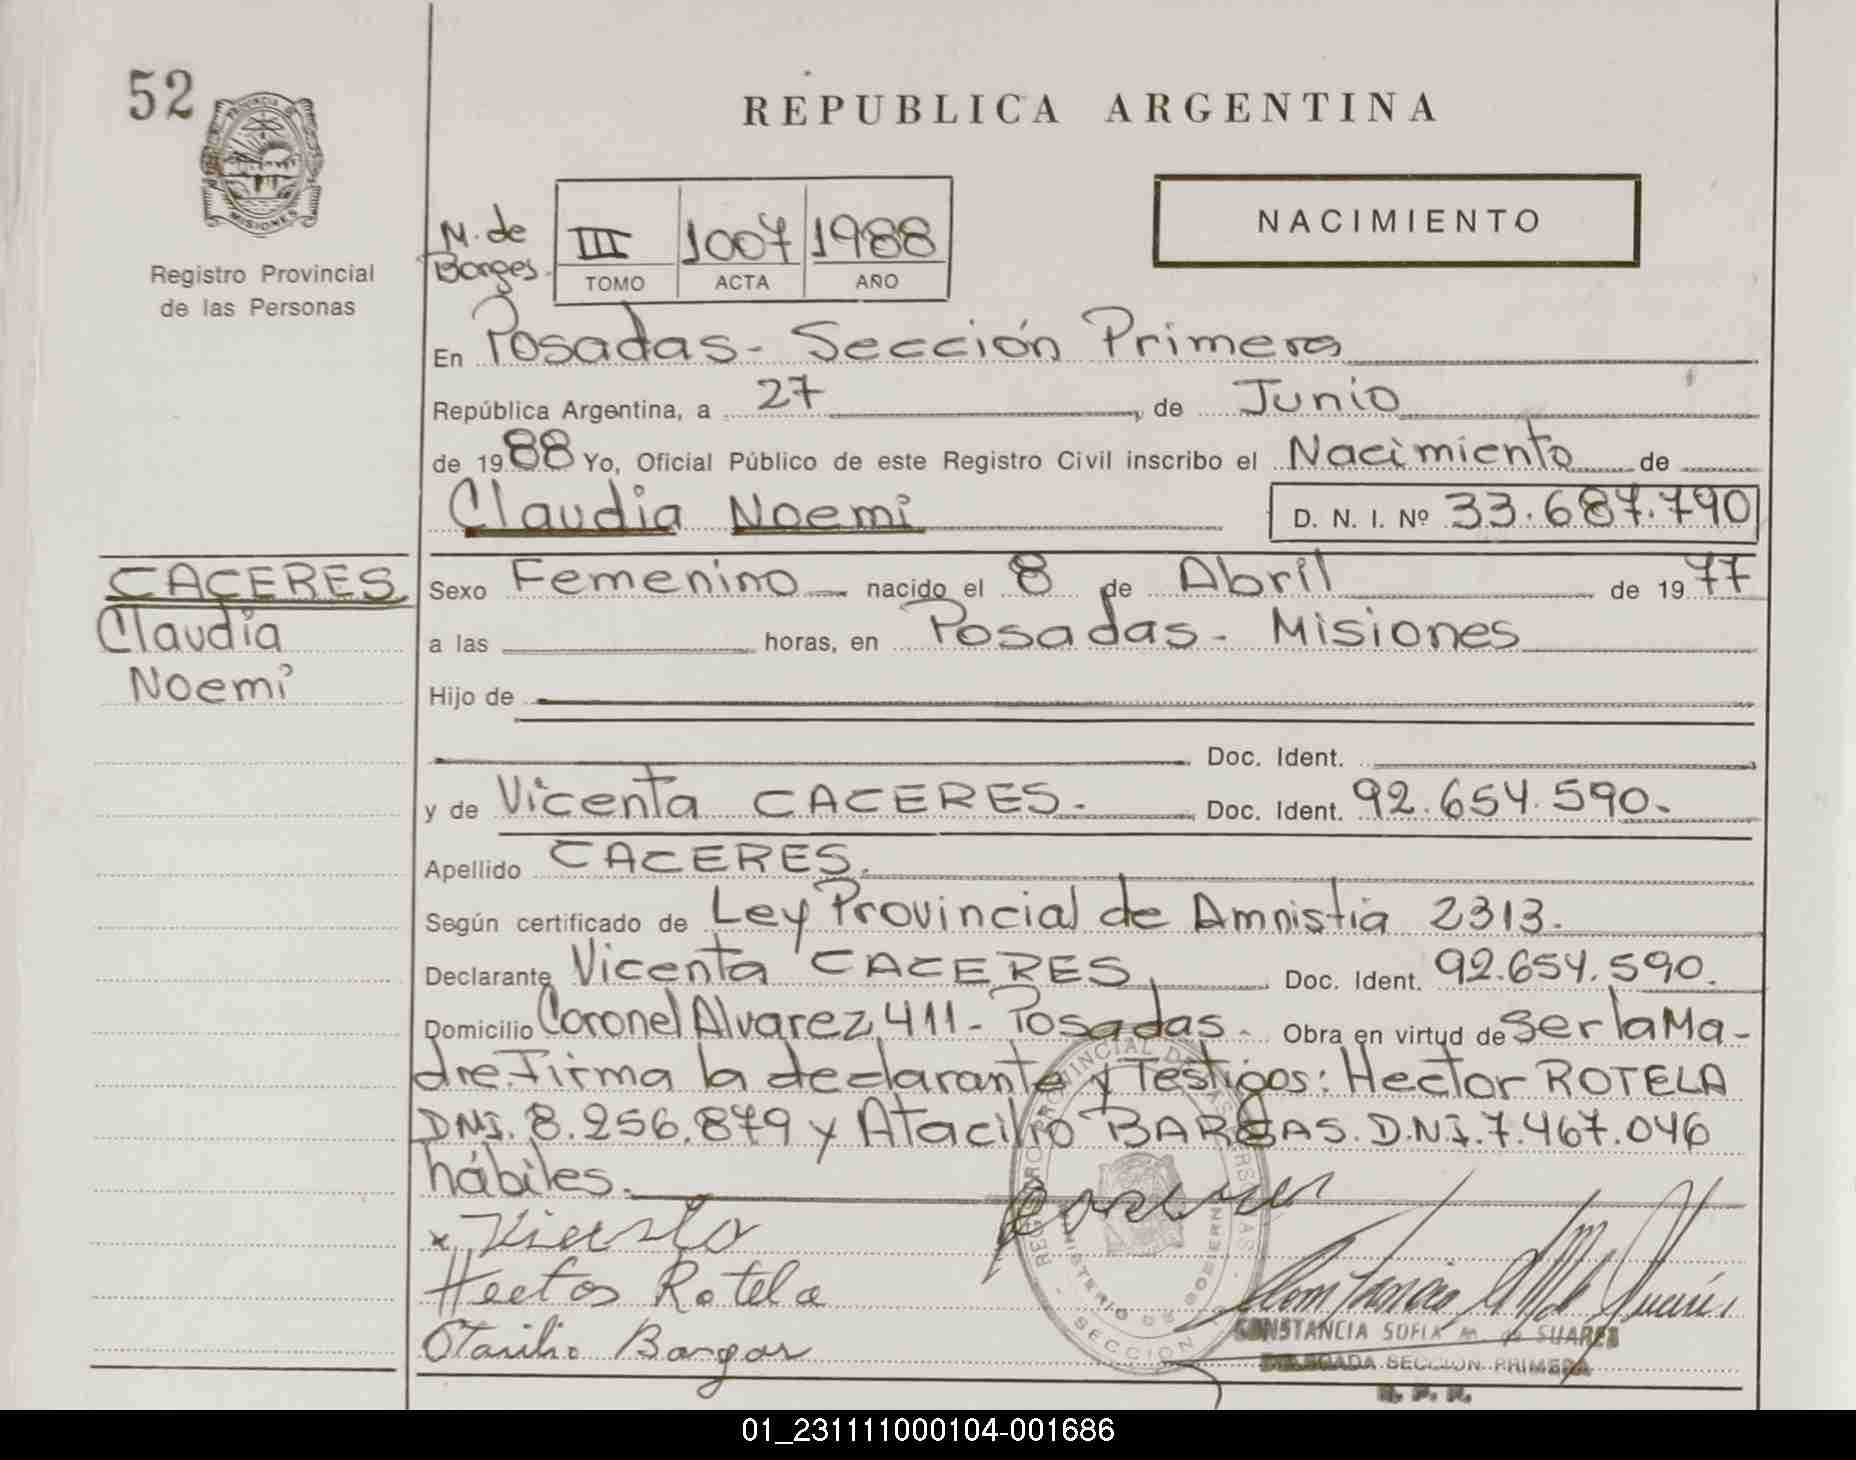 52
REPUBLICA ARGENTINA
NACIMIENTO
PROVINCIA DE
MISIONES
Registro Provincial
de las Personas
M. de
Borges
III 1007 1988
TOMO ACTA AÑO
En Posadas - Sección Primera
República Argentina, a 27, de Junio
de 1988 Yo, Oficial Público de este Registro Civil inscribo el Nacimiento de
Claudia Noemi D. N. I. Nº 33.687.790
CACERES
Claudia
Noemi
Sexo Femenino nacido el 8 de Abril de 1977
a las horas, en Posadas - Misiones
Hijo de
Doc. Ident.
y de Vicenta CACERES. Doc. Ident. 92.654.590.
Apellido CACERES.
Según certificado de Ley Provincial de Amnistia 2313.
Declarante Vicenta CACERES Doc. Ident. 92.654.590.
Domicilio Coronel Alvarez 411 - Posadas - Obra en virtud de ser la Ma-
dre. Firma la declarante y Testigos: Hector ROTELA
DNI. 8.256.879 y Atacilio BARGAS. D.N.I. 7.467.046
hábiles.
Hector Rotela
Bargas
CONSTANCIA SOFIA M. de SUAREZ
DELEGADA SECCION PRIMERA
R. P. P.
01_231111000104-001686